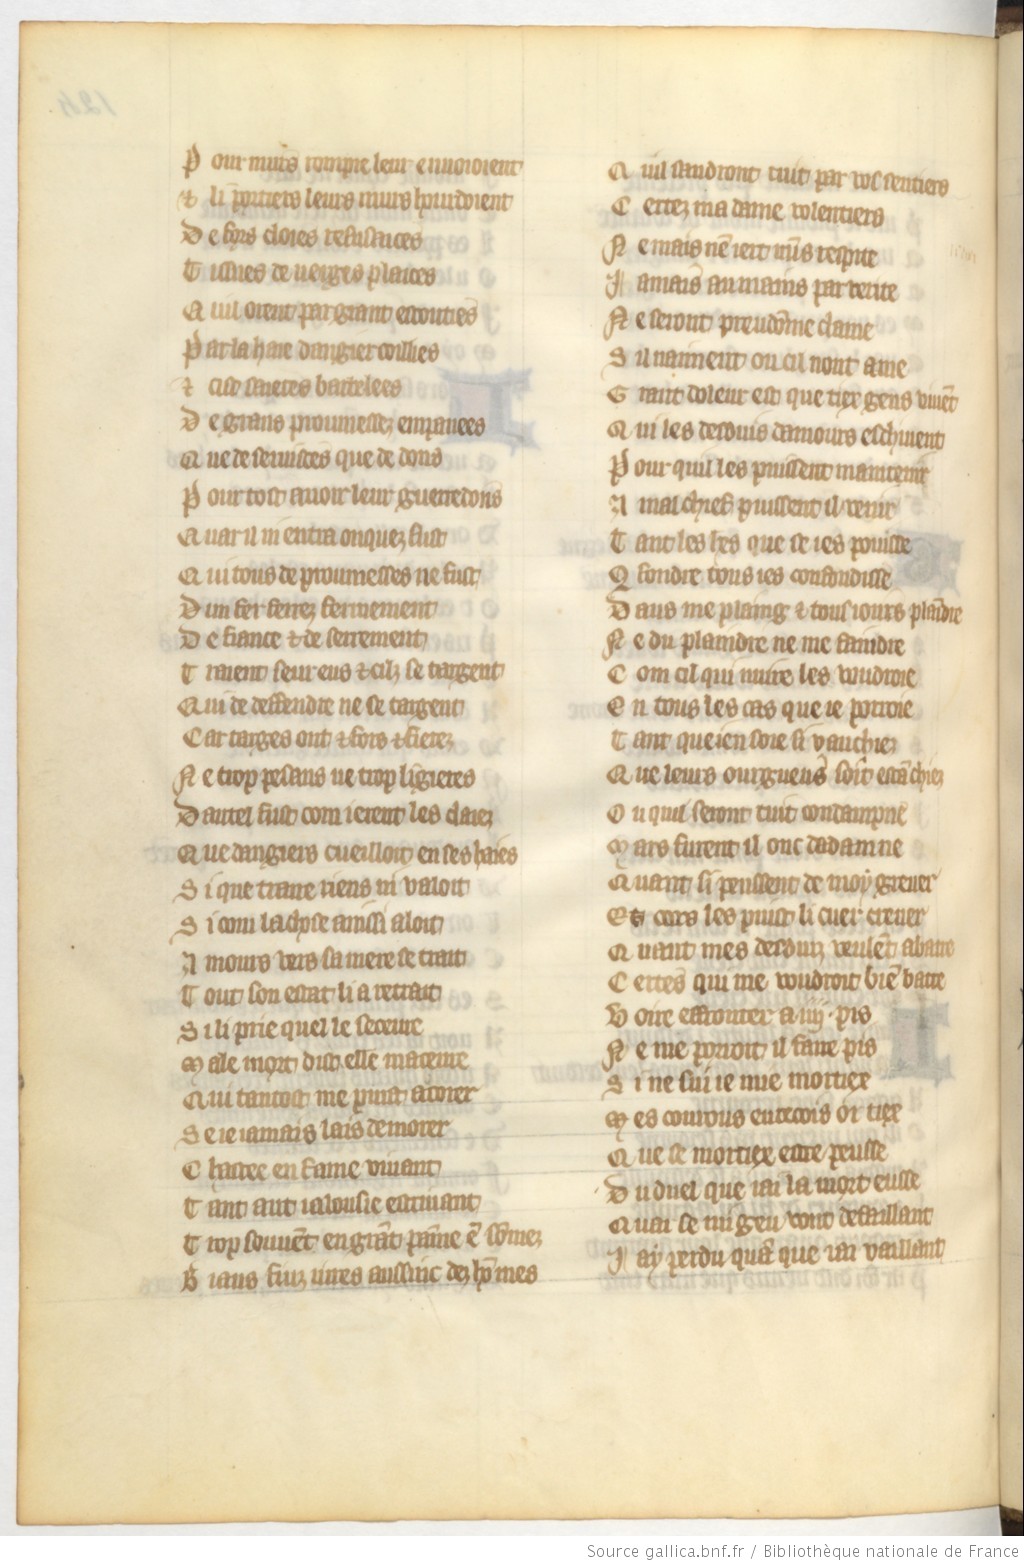 P our murs rompre leur enuoioient
& li portiers leurs murs hourdoient
D e fors cloies refusaices
T issues de uerges plaices
Q uil orent par grant estouties
P ar la haie dangier coillies
& cist saietes barbelees
D e grans proumessez enpanees
Q ue de seruices que de dons
P our tost auoir leur guerredons
Q uar il ni entra onquez fust
Q ui tous de proumesses ne fust
D un fer ferrez fermement
D e fiance & de serrement
T raient seur eus & cilz se targent
Q ui de deffendre ne se targent
C ar targes ont & fors & fierez
N e trop pesans ne trop legieres
D autel fust com ierent les claiez
Q ue dangiers cueilloit en ses haies
S i que traire riens ni valoit
S i com la chose ainssi aloit
A mours vers sa mere se trait
T out son estat li a retrait
S i li prie quel le sequeure
M ale mort dist elle maceure
Q ui tantost me puist acorer
S e ie iamais lais demorer
C hastee en fame viuant
T ant aut ialousie estriuant
T rop souuēt en grāt painne ē sōmez
B iaus fiuz iures aussinc dez hōmes
Q uil saudront tuit par vos sentiers
C ertez ma dame volentiers
N e mais nē iert nus respite
J amais au mains par verite
N e seront preudōme clame
S il naiment ou cil nont ame
G rant doleur est que tiex gens viuēt
Q ui les desduis damours eschiuent
P our quil les puissent maintenir
A mal chief puissent il venir
T ant les hes que se ies pouisse
Q fondre tous ies confondisse
D aus me plaing & tous iours plaīdre
N e du plaindre ne me faindre
C om cil qui nuire les voudroie
E n tous les cas que ie porroie
T ant que ien soie si vanchiez
Q ue leurs ourgueus soīt estāchiez
O u quil seront tuit condampne
M ars furent il onc dadam ne
Q uant si penssent de moy greuer
E s cors les puist li cuer creuer
Q uant mes desduiz veulēt abatre
C ertes qui me voudroit biē batre
V oire effronter a iiij. pis
N e me porroit il faire pis
S i ne sui ie mie mortiex
M es courous enrecois or tiex
Q ue se mortiex estre peusse
D u duel que iai la mort eusse
Q uar se mi geu vont defaillant
J ay perdu quā que iai vaillant
Source gallica.bnf.fr / Bibliothèque nationale de France